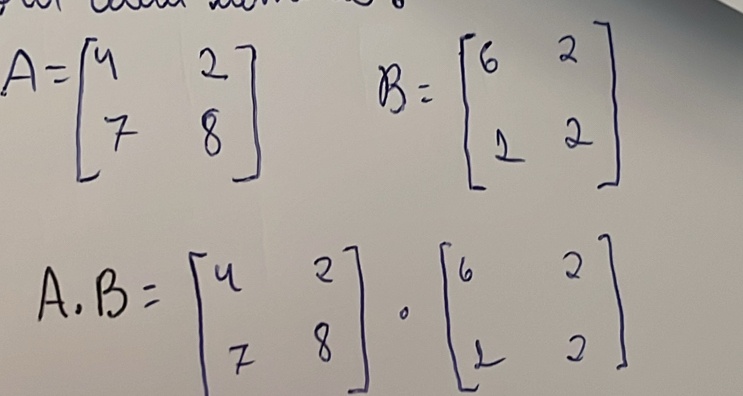 A = [4 2
7 8] B = [6 2
1 2]
A.B = [4 2
7 8] . [6 2
1 2]